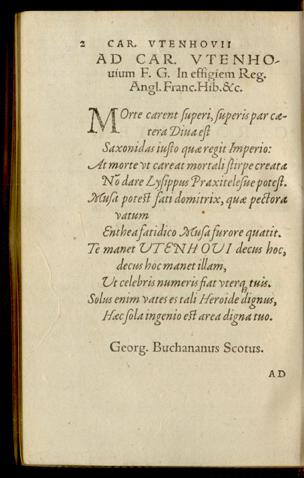 2 CAR. VTENHOVII
AD CAR. VTENHO-
uium F. G. In effigiem Reg.
Angl. Franc. Hib. &c.
MOrte carent superi, superis par cæ-
tera Diua est
Saxonidas iusto quæ regit Imperio:
At morte vt careat mortali stirpe creata
Nõ dare Lysippus Praxitelesue potest.
Musa potest fati domitrix, quæ pectora
vatum
Enthea fatidico Musa furore quatit.
Te manet UTENHOVI decus hoc,
decus hoc manet illam,
Ut celebris numeris fiat vterq; tuis.
Solus enim vates es tali Heroide dignus,
Hæc sola ingenio est area digna tuo.
Georg. Buchananus Scotus.
AD